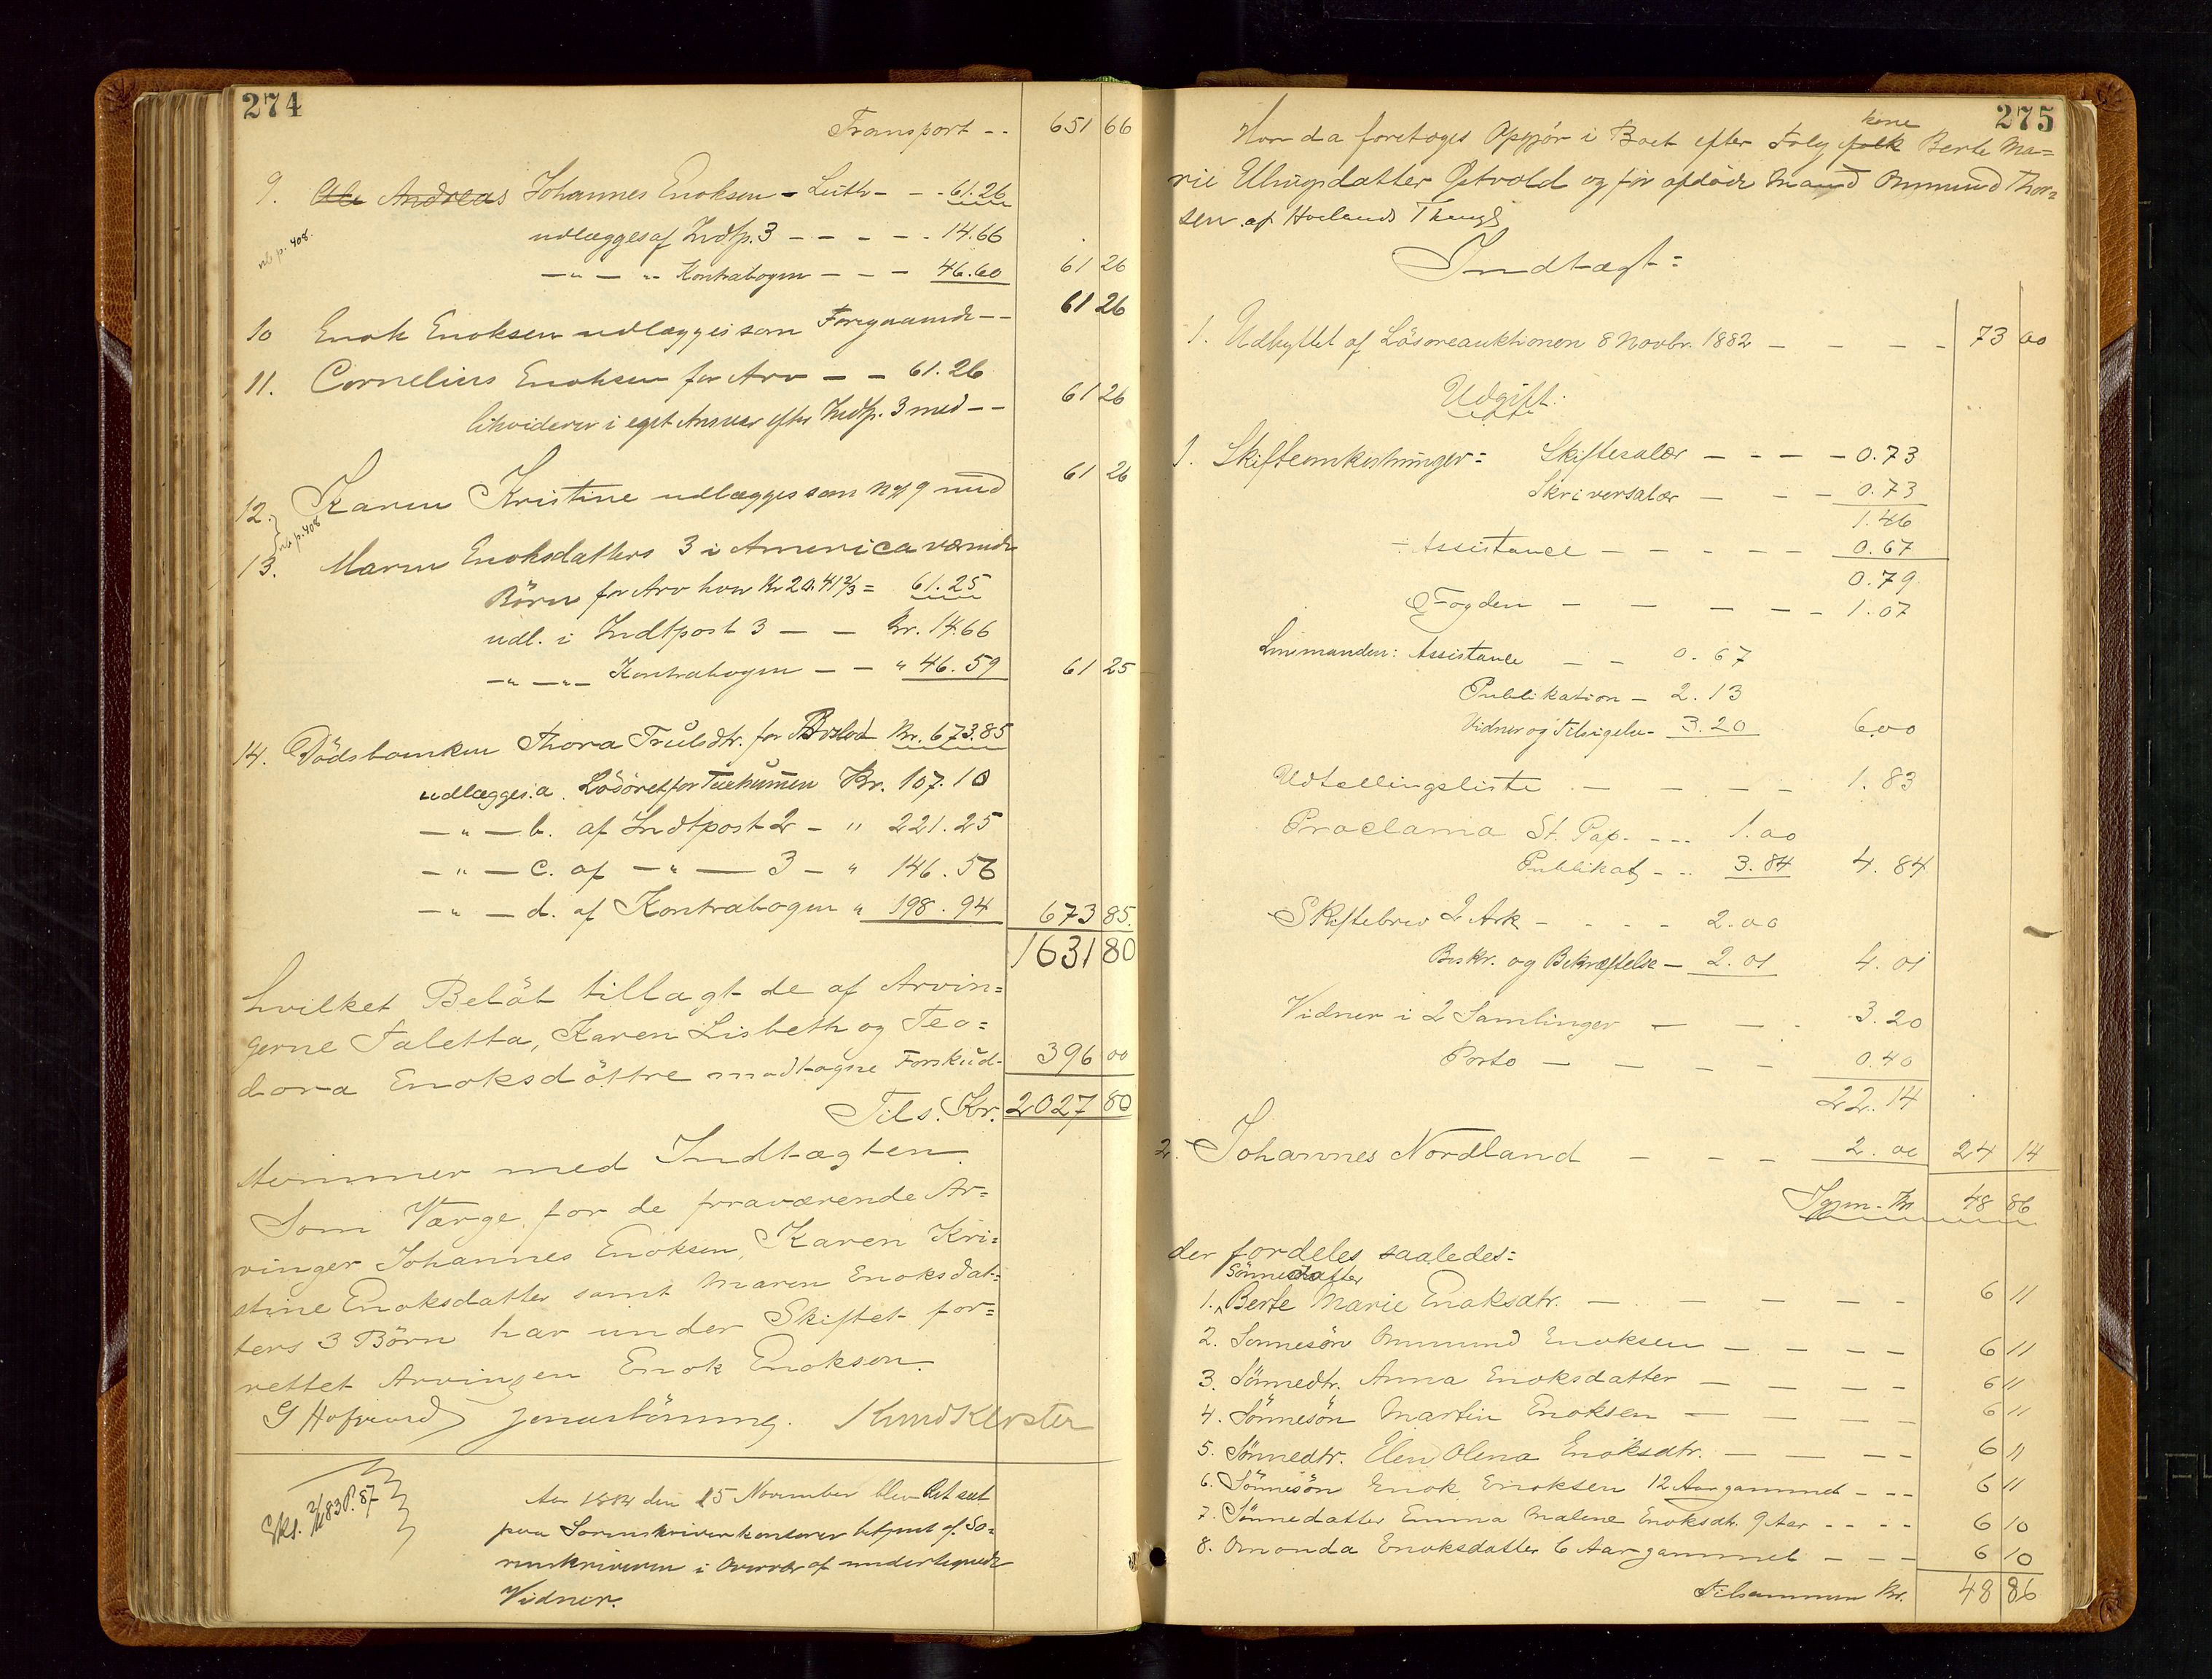 274
Transport -- 651 66
9. Ole Andreas Johannes Enoksen - Leith - - - 61.26
nb p. 408.
udlægges af Indtp. 3 - - - - - 14.66
- " - " Kontrabogen - - - 46.60 61 26
10 Enok Enoksen udlægges som Foregaaende -- 61 26
11. Cornelius Enoksen for Arv - - 61.26
likviderer i eget Ansvar efter Indtp. 3 med -- 61 26
12. Karen Kristine udlægges som No 9 med 61 26
nb p. 408
13. Maren Enoksdatters 3 i America værende
Börn for Arv hver Kr 20.41 2/3 = 61.25
udl. i Indtpost 3 - - Kr. 14.66
- " - " - Kontrabogen - - " 46.59 61 25
14. Dödsboenken Thora Trulsdtr. for Boslod Kr. 673.85
udlægges: a. Lösöret for Kr. 107.10
- " - b. af Indtpost 2 - " 221.25
- " - c. af - " - 3 - " 146.56
- " - d. af Kontrabogen " 198.94 673 85.
1631 80
hvilket Beløb tillagt de af Arvin=
gerne Taletta, Karen Lisbeth og Teo=
dora Enoksdöttre modtagne Forskud- 396 00
Tils. Kr. 2027 80
stemmer med Indtægten.
Som Værge for de fraværende Ar=
vinger Johannes Enoksen, Karen Kri=
stine Enoksdatter samt Maren Enoksdat=
ters 3 Börn har under Skiftet for=
rettet Arvingen Enok Enoksen.
G Hofgaard Jonas Lönning. Knud Klyster
Skt. 2/11 83 P. 87
Aar 1882 den 15 November blev Ret sat
paa Sorenskriverkontoret betjent af So=
renskriveren i Overvær af undertegnede
Vidner.
275
Hvor da foretoges Opgjör i Boet efter Folg folk kone Berte Ma=
rie Ulvigsdatter Østvold og før afdöde Mand Ommund Thor=
sen af Hoelands Thingl.
Indtægt:
1. Udbyttet af Lösöreauktionen 8 Novbr. 1882 - - - - 73 00
Udgift:
1. Skifteomkostninger: Skiftesalær - - - - 0.73
Skriversalær - - - 0.73
1.46
÷ Assistance - - - - - 0.67
0.79
Fogden - - - - - 1.07
Lensmanden: Assistance - - 0.67
Publikation - 2.13
Vidner og Tilsigelse - 3.20 6.00
Udtællingsliste - - - - 1.83
Proclama St. Pap. - - - 1.00
Publikat. - - - 3.84 4.84
Skiftebrev 2 Ark - - - - 2.00
Beskr. og Bekræftelse - 2.01 4.01
Vidner i 2 Samlinger - - - 3.20
Porto - - - - 0.40
22.14
2. Johannes Nordland - - - 2.00 24 14
Igjen Kr 48 86
der fordeles saaledes:
Sönnedatter
1. Berte Marie Enoksdtr. - - - - - 6 11
2. Sonnesön Ommund Enoksen - - - - 6 11
3. Sönnedtr. Anna Enoksdatter - - - - 6 11
4. Sönnesön Martin Enoksen - - - - 6 11
5. Sönnedtr. Elen Olena Enoksdtr. - - - - 6 11
6. Sönnesön Enok Enoksen 12 Aar gammel - - - 6 11
7. Sönnedatter Emma Malene Enoksdtr. 9 Aar - - - - 6 10
8. Omonda Enoksdatter 6 Aar gammel - - - 6 10
Tilsammen Kr. 48 86